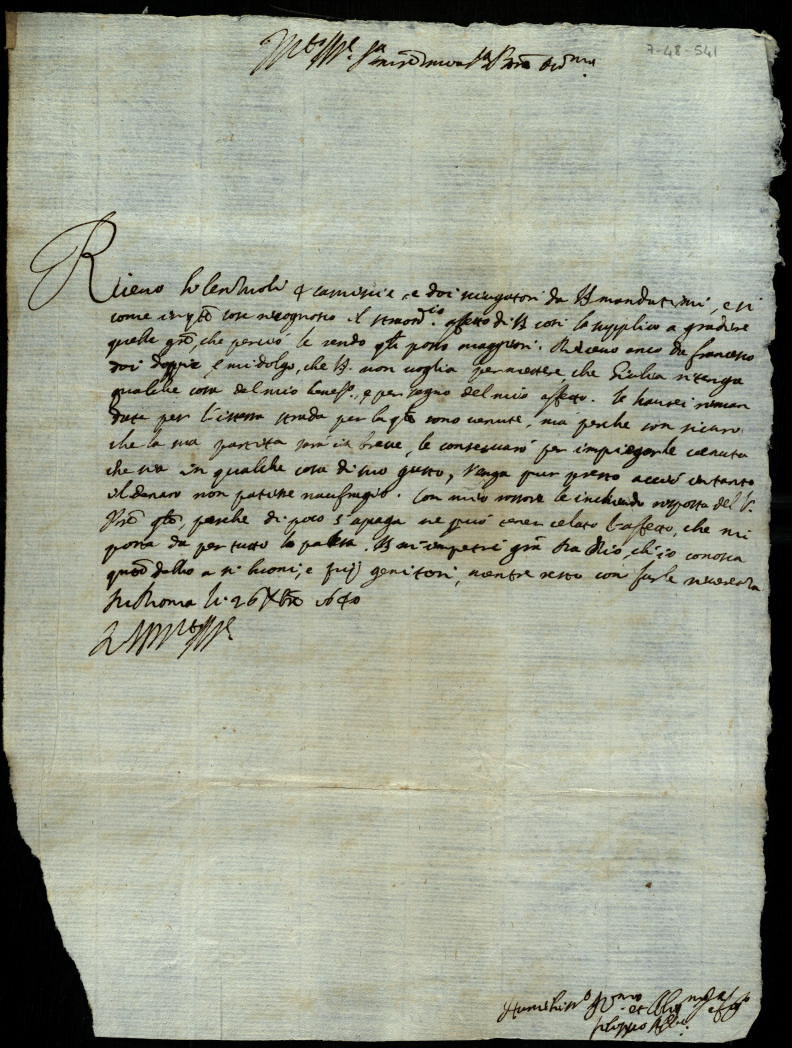 7-48-541
Molto Ill.re Sig.ra mia Sig.ra P.rona
Riceuo li lenzuoli 4 camicie, e doi sciugatori da VS mandatimi, e si
come in q.te cose ricognosco il straord.io affetto di VS così la supplico a gradire
quelle gr.e, che perciò le rendo q.li posso maggiori. Riceuo anco da francesco
doi doppie, e mi dolgo, che VS. non uoglia permettere che Giulia ritenga
qualche cosa del mio, e per segno del mio affetto. le haurei riman
date per l'istessa strada per la q.le sono uenute, ma perche son sicuro
che la sua partita sarà in breue, le conseruarò per impiegarle uenuta
che sia in qualche cosa di suo gusto, Venga pur presto acciò intanto
il denaro non patisse naufragio. Con mio rossore le inchiudo risposta del
perche di poco s'apaga ne può tener celato l'affetto, che mi
porta da per tutto lo palesa. VS mi impetri gr.a da Dio, ch'io conosca
a si buoni, e pij genitori, mentre resto con farle riuerenza
Di Roma li 26 Xbre 1640
Di VS Molto Ill.re
Humiliss.o
filippo